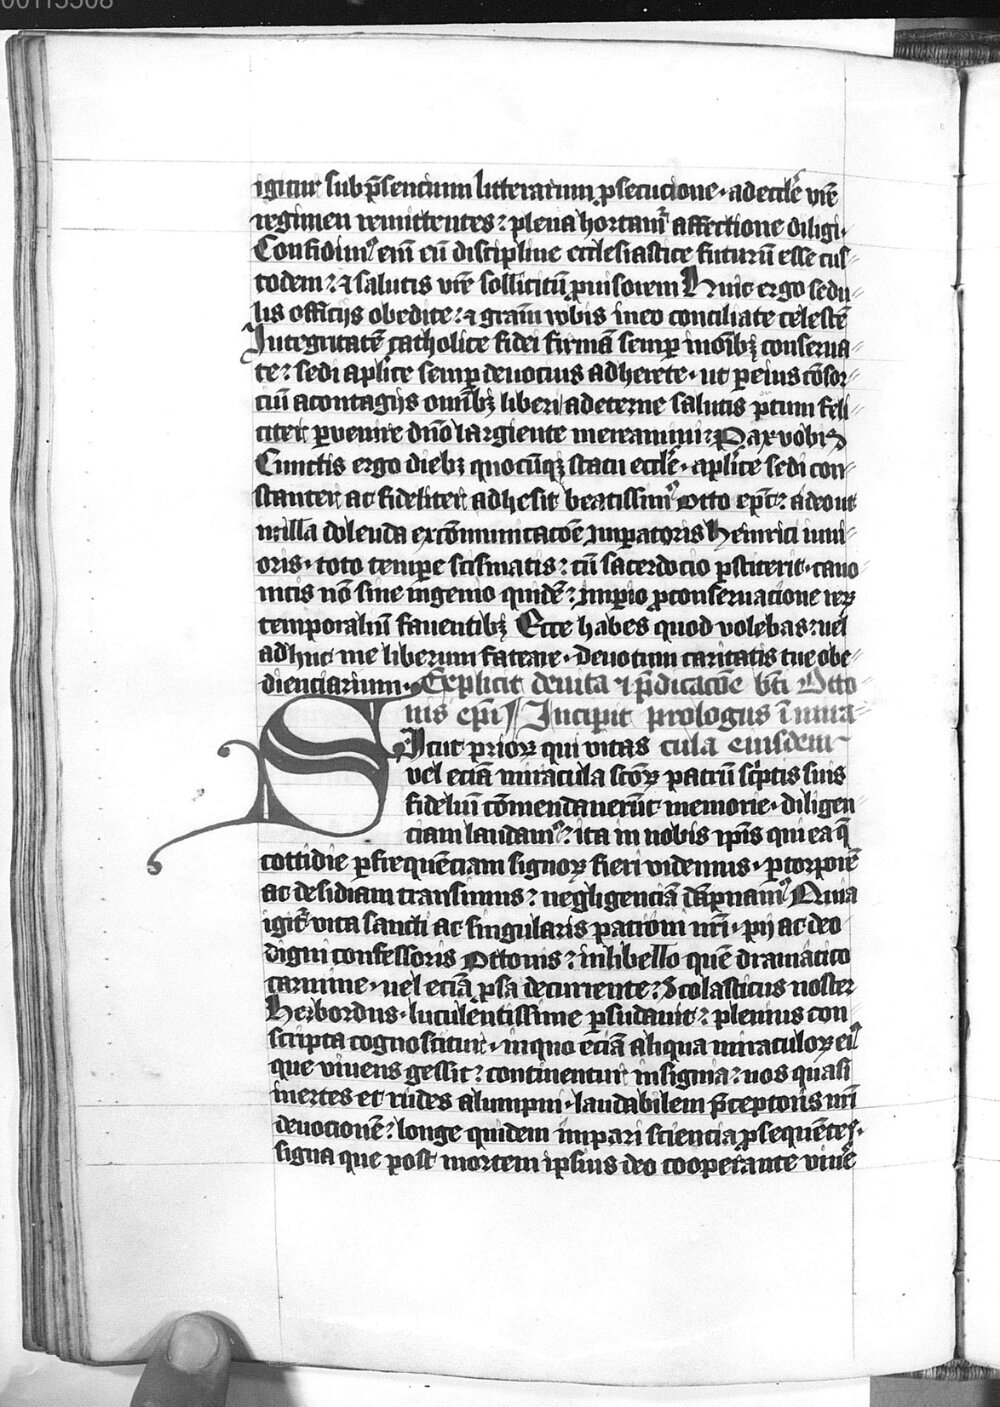 00115508
igitur sub p̄sencium litterarum ꝓsecucione · ad eccl̄e vr̄e
regimen remittentes : plena hortam̄ affectione diligi·
Confidim᷒ eni᷑ eū discipline ecclesiastice futurū esse cus⸗
todem : ⁊ salutis vr̄e sollicitū ꝓuisorem Huic ergo sedu⸗
lis officijs obedite : ⁊ grām vobis in eo conciliate celestē
Integritatē catholice fidei firmā semꝑ in oīb⁊ conserua⸗
te : sedi aplīce semꝑ deuocius adherete · ut ꝑ eius cōsor⸗
ciū a contagijs omīb⁊ liberi ad eterne salutis ꝑtum feli⸗
citer ꝑvenire dn̄o largiente mereamini : Pax vobis
Cunctis ergo dieb⁊ quocūq⁊ statu eccl̄e · aplīce sedi con⸗
stanter ac fideliter adhesit beatissim᷒ Otto ep̄c : adeo ut
nulla dolenda excōmunicacōe Impatoris Heinrici iuni
oris · toto tempe scismatis : cū sacerdocio ꝑstiterit · cano
nicis nō sine ingenio quidē : Impio ꝓ conseruacione reꝝ
temporaliū fauentib⁊ Ecce habes quod volebas : uel
adhuc me liberum fateare · deuotum caritatis tue obe⸗
dienciarium · Explicit de vita ⁊ p̄dicacōe b̄ti Otto
nis ep̄i Incipit prologus ī mira⸗
Sicut prioꝝ qui vitas cula eiusdem
vel eciā miracula sc̄oꝝ patrū sc̄ptis suis
fideliū cōmendauerūt memorie · diligen
ciam laudam᷒ : ita in nobis ip̄is qui ea q̄
cottidie ꝑ frequēciam signoꝝ fieri videmus · ꝑ torporē
ac desidiam transimus : negligenciā dāpnam᷒ Quia
igit᷑ vita sancti ac singularis patroni nr̄i · pij ac deo
digni confessoris Ottonis : in libello quē dramatico
carmine · uel eciā ꝓsa decurrente : Scolasticus noster
Herbordus · luculentissime ꝓsudauit : plenius con
scripta cognoscitur · in quo eciā aliqua miraculoꝝ ei᷒
que viuens gessit : continentur insignia : nos quasi
inertes et rudes alumpni · laudabilem p̄ceptoris nr̄i
deuocionē : longe quidem impari sciencia ꝓsequētes ·
signa que post mortem ipsius deo cooperante viu᷑e